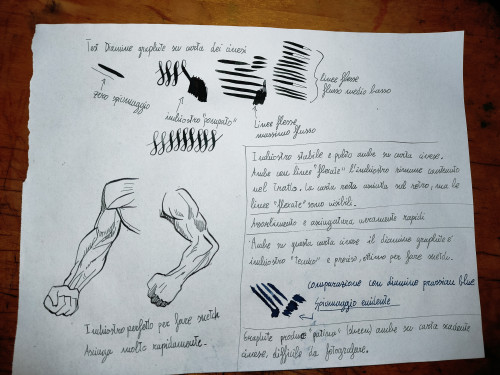 Test Diamine graphite su carta dei cinesi
zero spiumaggio
inchiostro "pompato"
linee flesse
massimo flusso
linee flesse
flusso medio basso
Inchiostro stabile e pulito anche su carta cinese.
Anche con linee "flexate" l'inchiostro rimane contenuto
nel tratto. La carta resta asciutta sul retro, ma le
linee "flexate" sono visibili.
Assorbimento e asciugatura veramente rapidi
Anche su questa carta cinese il diamine graphite è
inchiostro "tecnico" e preciso, ottimo per fare sketch.
comparazione con diamine prussian blue
Spiumaggio evidente
Graphite produce "patina" (sheen) anche su carta scadente
cinese, difficile da fotografare.
Inchiostro perfetto per fare sketch
Asciuga molto rapidamente.